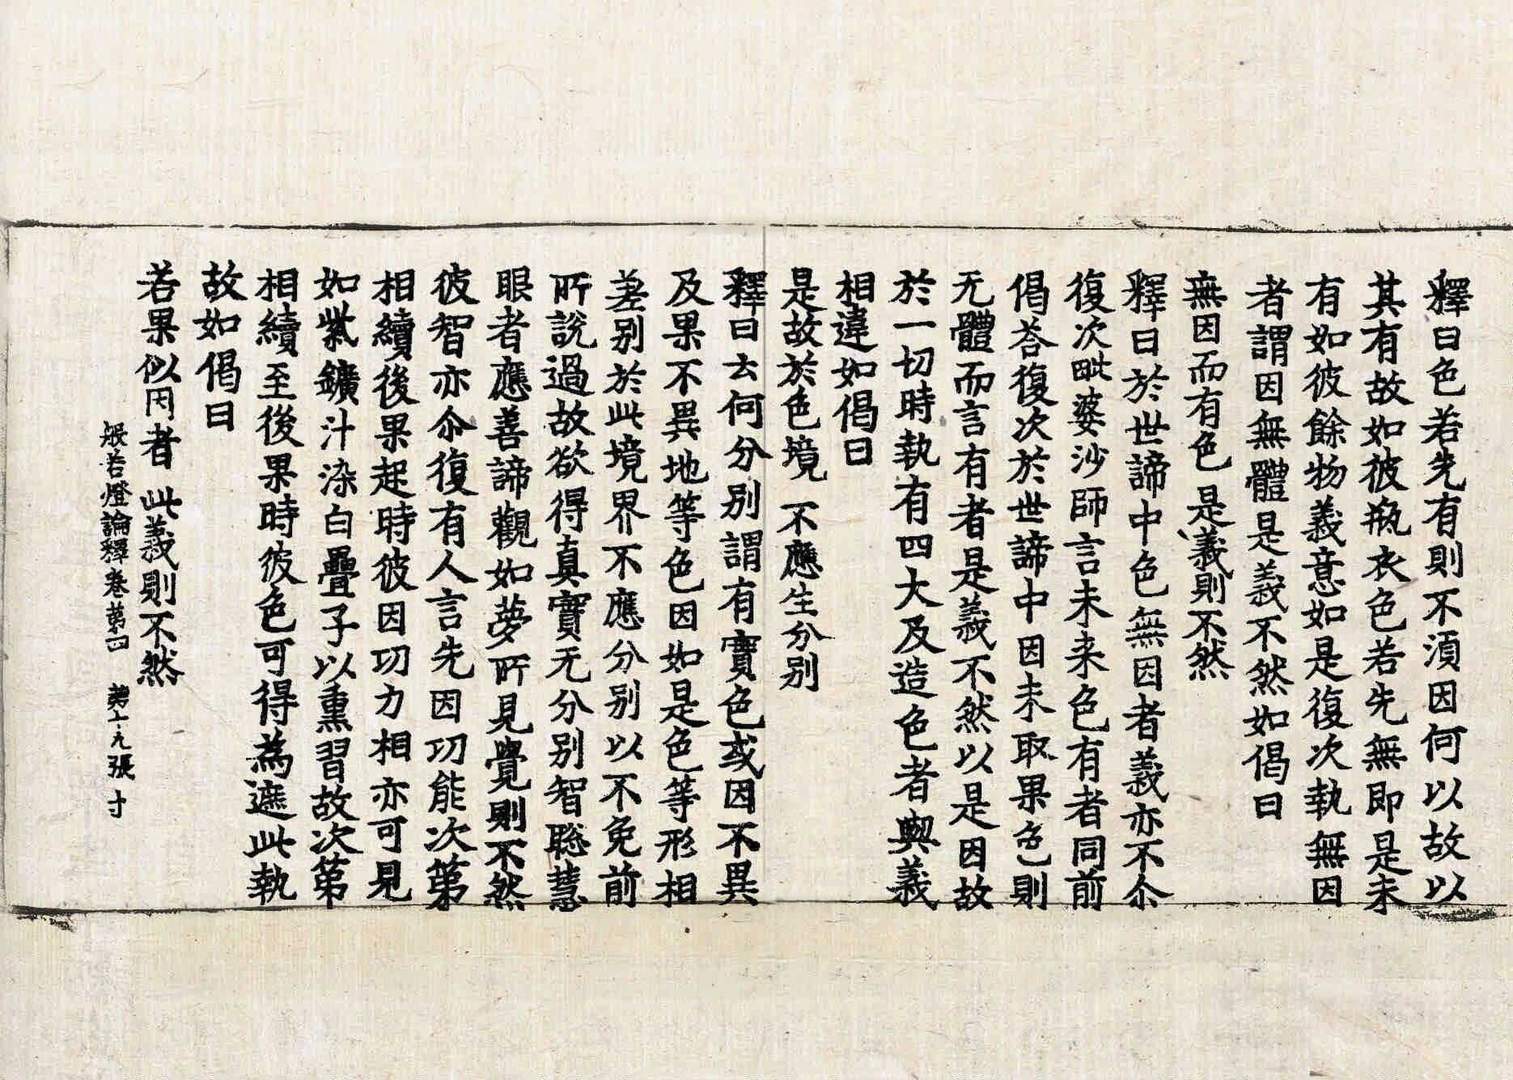 釋曰色若先有則不湏因何以故以
其有故如彼瓶衣色若先無即是未
有如彼餘物義意如是復次執無因
者謂因無體是義不然如偈曰
無因而有色 是義則不然
釋曰於世諦中色無因者義亦不尒
復次毗婆沙師言未来色有者同前
偈荅復次於世諦中因未取果色則
无體而言有者是義不然以是因故
於一切時執有四大及造色者與義
相違如偈曰
是故於色境 不應生分別
釋曰云何分別謂有實色或因不異
及果不異地等色因如是色等形相
差別於此境界不應分別以不免前
所說過故欲得真實无分別智聡慧
眼者應善諦觀如夢所見覺則不然
彼智亦尒復有人言先因功能次第
相續後果起時彼因功力相亦可見
如紫鑛汁染白疊子以熏習故次第
相續至後果時彼色可得為遮此執
故如偈曰
若果似因者 此義則不然
般若燈論釋卷苐四 張 寸